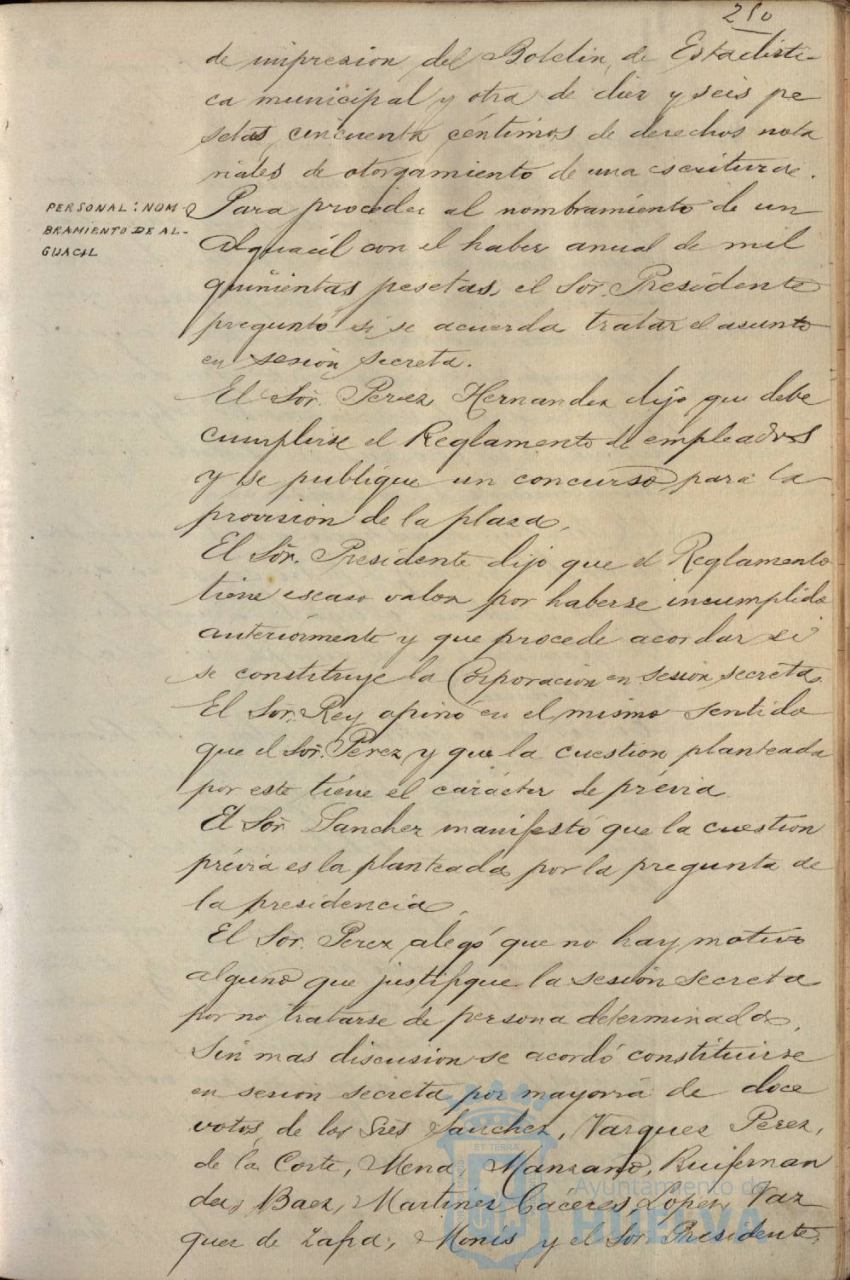 210
de impresion del Boletin de Estadisti-
ca municipal y otra de diez y seis pe
setas cincuenta céntimos de derechos nota
riales de otorgamiento de una escritura.
PERSONAL: NOM-
BRAMIENTO DE AL-
GUACIL
Para proceder al nombramiento de un
Alguacil con el haber anual de mil
quinientas pesetas, el Sor. Presidente
preguntó si se acuerda tratar el asunto
en sesión secreta.
El Sor. Perez Hernandez dijo que debe
cumplirse el Reglamento de empleados
y se publique un concurso para la
provision de la plaza.
El Sor. Presidente dijo que el Reglamento
tiene escaso valor por haberse incumplido
anteriormente y que procede acordar si
se constituye la Corporacion en sesion secreta.
El Sor. Rey opinó en el mismo sentido
que el Sor. Perez y que la cuestion planteada
por este tiene el carácter de prévia.
El Sor Sanchez manifestó que la cuestion
prévia es la planteada por la pregunta de
la presidencia.
El Sor. Perez alegó que no hay motivo
alguno que justifique la sesión secreta
por no tratarse de persona determinada.
Sin mas discusion se acordó constituirse
en sesion secreta por mayoria de doce
votos, de los Sres Sanchez, Vazquez Perez,
de la Corte, Mena, Manzano, Ruifernan
dez, Baez, Martinez Cáceres, Lopez, Vaz
quez de Zafra, Monis y el Sor. Presidente,
ET TERRA
Ayuntamiento de
HUELVA